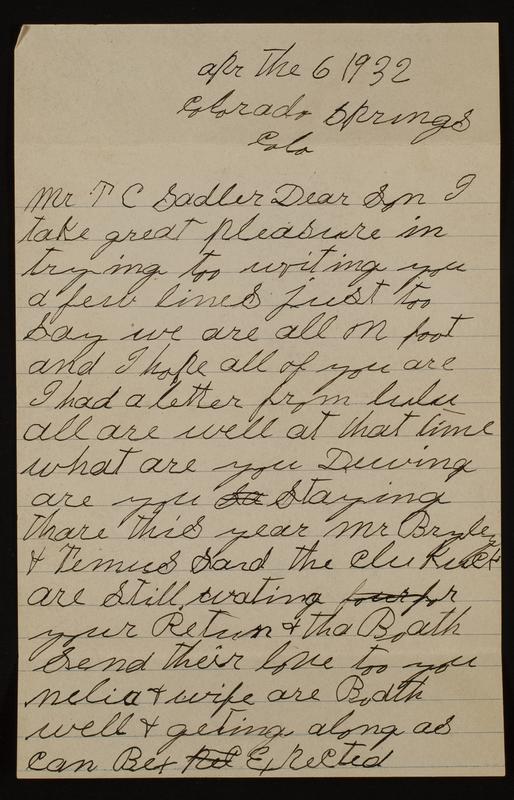 apr the 6 1932
Colorado Springs
Colo
Mr T C Sadler Dear Son I
take great pleasure in
trying too writing you
a few lines just too
say we are all on foot
and I hope all of you are
I had a letter from lulu
all are well at that time
what are you Duving
are you so staying
thare this year Mr
& Temus said the
are still wating for
your Return & tha Boath
send their love too you
nelia & wife are Boath
well & geting along as
can Bee Exspected